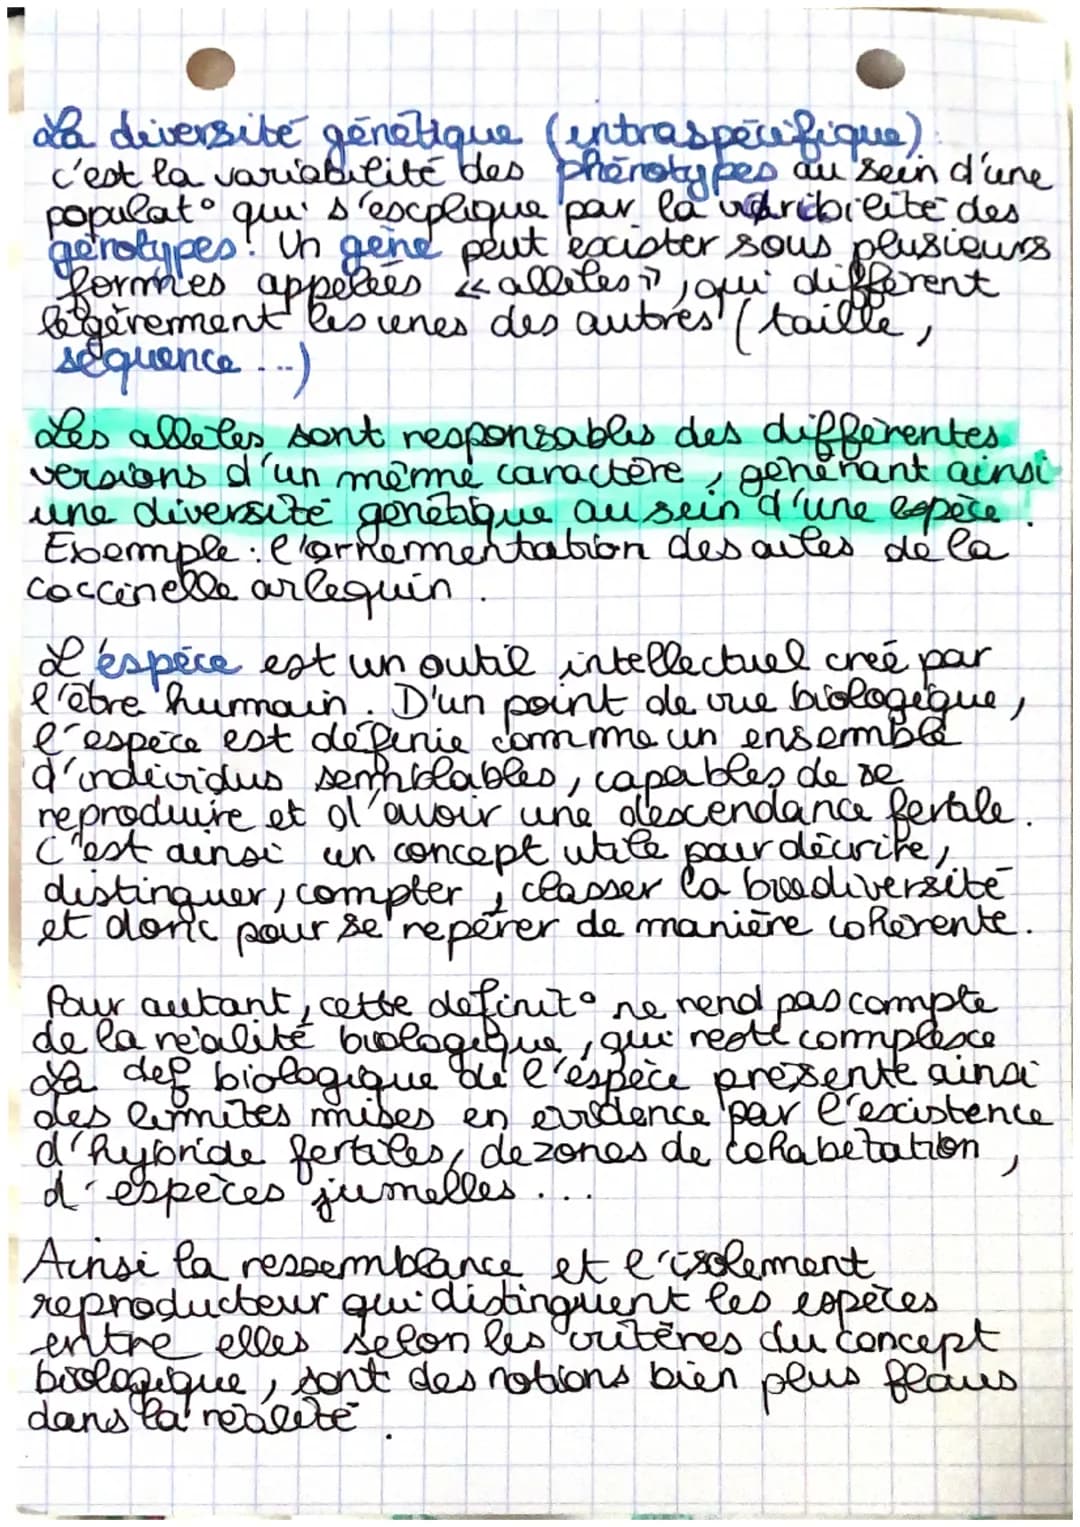 La diversité génétique (intraspécifique) :
c'est la variabilité des phénotypes au sein d'une
populat° qui s'explique par la variabilité des
génotypes. Un gène peut exister sous plusieurs
formes appelées « allèles », qui diffèrent
légèrement les unes des autres (taille,
séquence ...)
Les allèles sont responsables des différentes
versions d'un même caractère, générant ainsi
une diversité génétique au sein d'une espèce.
Exemple : l'ornementation des ailes de la
coccinelle arlequin.
L'espèce est un outil intellectuel créé par
l'être humain. D'un point de vue biologique,
l'espèce est définie comme un ensemble
d'individus semblables, capables de se
reproduire et d'avoir une descendance fertile.
C'est ainsi un concept utile pour décrire,
distinguer, compter, classer la biodiversité
et donc pour se repérer de manière cohérente.
Pour autant, cette définit° ne rend pas compte
de la réalité biologique, qui reste complexe
La def biologique de l'espèce présente ainsi
des limites mises en évidence par l'existence
d'hybride fertiles, de zones de cohabitation,
d'espèces jumelles ...
Ainsi la ressemblance et l'isolement
reproducteur qui distinguent les espèces
entre elles selon les critères du concept
biologique, sont des notions bien plus floues
dans la réalité.